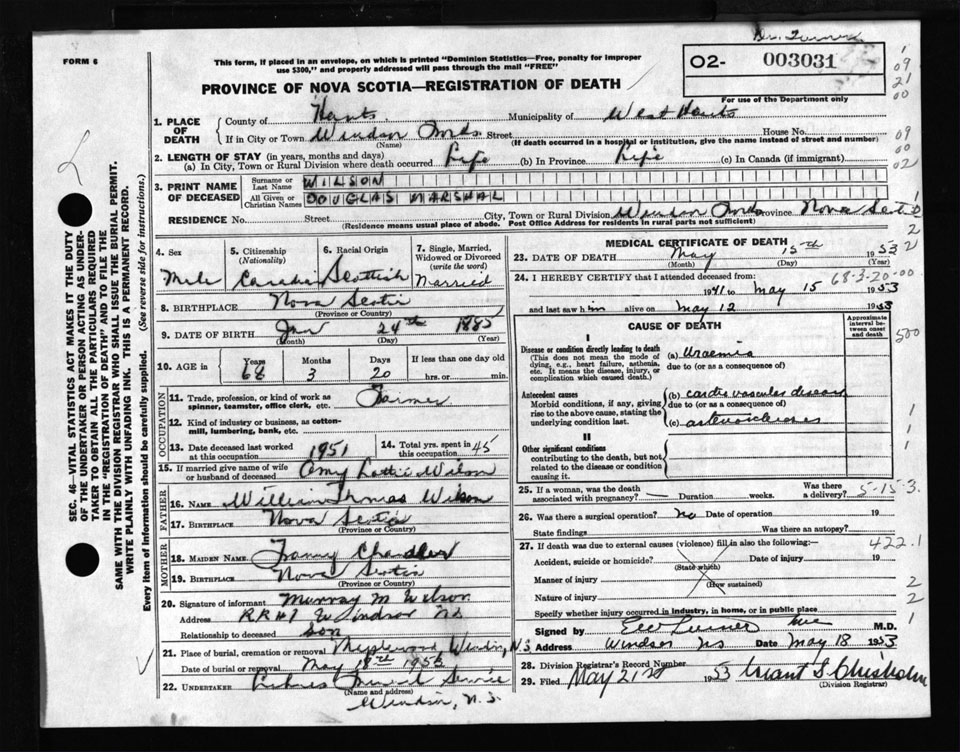 Dr. Turner
FORM 6
This form, if placed in an envelope, on which is printed "Dominion Statistics—Free, penalty for improper
use $300," and properly addressed will pass through the mail "FREE"
02- 003031
PROVINCE OF NOVA SCOTIA—REGISTRATION OF DEATH
For use of the Department only
09
21
00
1. PLACE OF DEATH
County of Hants Municipality of West Hants
If in City or Town Windsor Street House No.
(Name) (If death occurred in a hospital or institution, give the name instead of street and number)
09
00
02
2. LENGTH OF STAY (in years, months and days)
(a) In City, Town or Rural Division where death occurred Life (b) In Province Life (c) In Canada (if immigrant)
3. PRINT NAME OF DECEASED
Surname or Last Name WILSON
All Given or Christian Names DOUGLAS MARSHAL
RESIDENCE No. Street City, Town or Rural Division Windsor Province Nova Scotia
(Residence means usual place of abode. Post Office Address for residents in rural parts not sufficient)
4. Sex
Male
5. Citizenship (Nationality)
Canadian
6. Racial Origin
Scottish
7. Single, Married, Widowed or Divorced (write the word)
Married
8. BIRTHPLACE Nova Scotia
(Province or Country)
9. DATE OF BIRTH Jan 24th 1885
(Month) (Day) (Year)
10. AGE in Years Months Days If less than one day old
68 3 20 hrs. or min.
OCCUPATION
11. Trade, profession, or kind of work as
spinner, teamster, office clerk, etc. Farmer
12. Kind of industry or business, as cotton-
mill, lumbering, bank, etc.
13. Date deceased last worked at this occupation 1951
14. Total yrs. spent in this occupation 45
15. If married give name of wife
or husband of deceased Amy Lottie Wilson
FATHER
16. NAME William Thomas Wilson
17. BIRTHPLACE Nova Scotia
(Province or Country)
MOTHER
18. MAIDEN NAME Fanny Chandler
19. BIRTHPLACE Nova Scotia
(Province or Country)
20. Signature of informant Murray M Wilson
Address RR#1 Windsor NS
Relationship to deceased son
21. Place of burial, cremation or removal Maplewood, Windsor, N.S.
Date of burial or removal May 1953
22. UNDERTAKER Funeral Service
(Name and address)
Windsor, N.S.
MEDICAL CERTIFICATE OF DEATH
23. DATE OF DEATH May 15th 1953
(Month) (Day) (Year)
24. I HEREBY CERTIFY that I attended deceased from:
68-3-20-00
1941 to May 15 1953
and last saw him alive on May 12 1953
CAUSE OF DEATH
Approximate interval between onset and death
500
I
Disease or condition directly leading to death
(This does not mean the mode of
dying, e.g., heart failure, asthenia,
etc. It means the disease, injury, or
complication which caused death.)
(a) Uraemia
due to (or as a consequence of)
Antecedent causes
Morbid conditions, if any, giving
rise to the above cause, stating the
underlying condition last.
(b) cardio vascular disease
due to (or as a consequence of)
(c) arteriosclerosis
II
Other significant conditions
contributing to the death, but not
related to the disease or condition
causing it.
25. If a woman, was the death
associated with pregnancy? Duration weeks. Was there a delivery?
5-15-3
26. Was there a surgical operation? no Date of operation 19
State findings Was there an autopsy?
27. If death was due to external causes (violence) fill in also the following:—
422.1
Accident, suicide or homicide? Date of injury 19
(State which)
Manner of injury
(How sustained)
Nature of injury
Specify whether injury occurred in industry, in home, or in public place
Signed by M.D.
Address Windsor NS Date May 18 1953
28. Division Registrar's Record Number
29. Filed May 21st 1953 Grant S. Chisholm
(Division Registrar)
SEC. 46—VITAL STATISTICS ACT MAKES IT THE DUTY
OF THE UNDERTAKER OR PERSON ACTING AS UNDER-
TAKER TO OBTAIN ALL THE PARTICULARS REQUIRED
IN THE "REGISTRATION OF DEATH" AND TO FILE THE
SAME WITH THE DIVISION REGISTRAR WHO SHALL ISSUE THE BURIAL PERMIT.
WRITE PLAINLY WITH UNFADING INK. THIS IS A PERMANENT RECORD.
Every item of information should be carefully supplied. (See reverse side for instructions.)